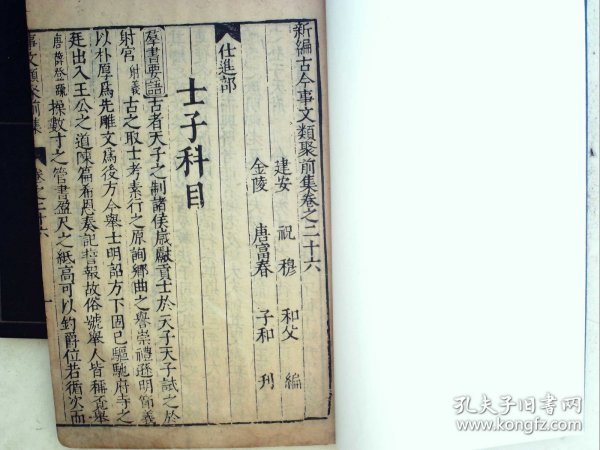 新編古今事文類聚前集卷之二十六
建安 祝穆 和父 編
金陵 唐富春 子和 刊
仕進部
士子科目
羣書要語古者天子之制諸侯歲獻貢士於天子天子試之於
射宮射義古之取士考素行之原詢鄉曲之譽崇禮遜明節義
以朴厚爲先雕文爲後方今舉士明詔方下固已驅馳府寺之
廷出入王公之道陳篇希恩奏記誓報故俗號舉人皆稱覓舉
唐薛登疏操數寸之管書盈尺之紙高可以釣爵位若循次而
事文類聚前集
卷之二十六
一
孔夫子旧书网